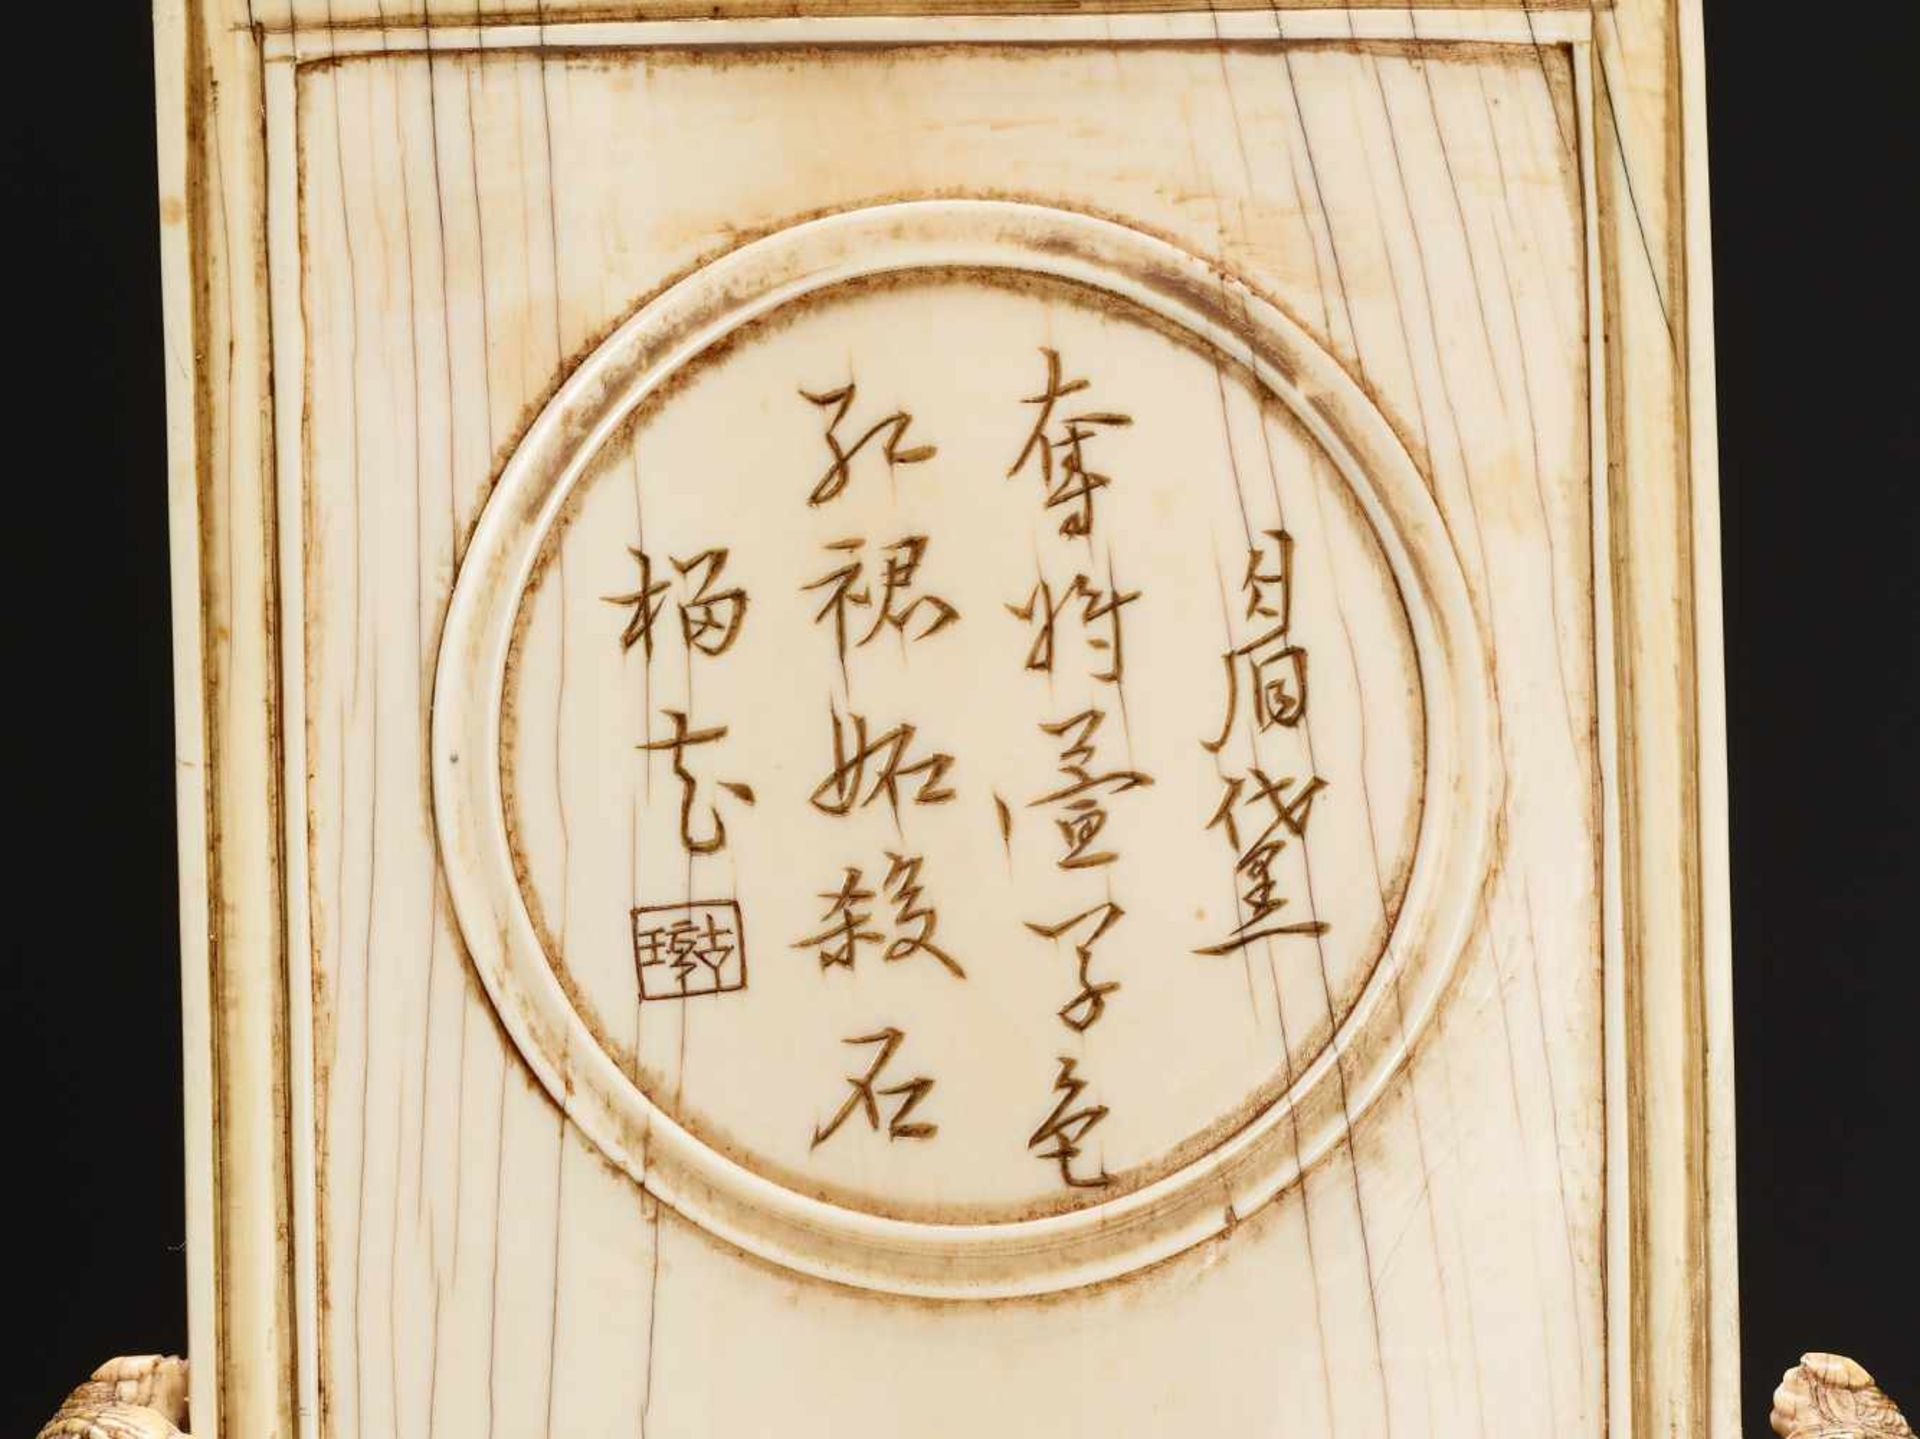 眉黛
奪將萱草色
紅裙妬殺石
榴花